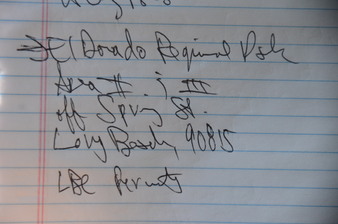 El Dorado Regional Park
Area II & III
off Spring St.
Long Beach, 90815
LBC Permits